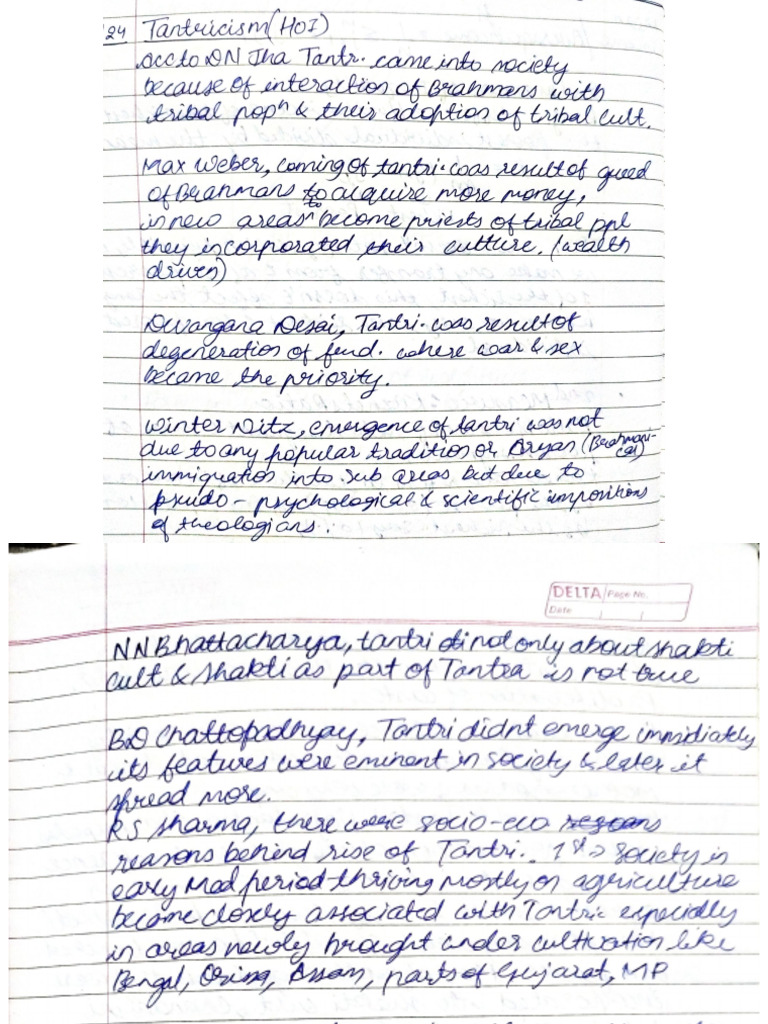 24 Tantricism (HOI)
Acc to DN Jha Tantr. came into society
because of interaction of Brahmans with
tribal popn & their adoption of tribal cult.
Max Weber, coming of tantri. was result of greed
of Brahmans to acquire more money,
in new areas to become priests of tribal ppl
they incorporated their culture. (wealth
driven)
Dwangana Desai, Tantri. was result of
degeneration of feud. where war & sex
became the priority.
Winter Nitz, emergence of tantri was not
due to any popular tradition or Aryan (Brahmani-
cal)
immigration into sub areas but due to
psuido - psychological & scientific impositions
of theologians.
DELTA Page No.
Date
NN Bhattacharya, tantri not only about shakti
cult & shakti as part of Tantra is not true
BD Chattopadhyay, Tantri didnt emerge immidiately
its features were eminent in society & later it
spread more.
RS Sharma, there were socio-eco
reasons behind rise of Tantri. 1st => society in
early Med period thriving mostly on agriculture
became closely associated with Tantric especially
in areas newly brought under cultivation like
Bengal, Orissa, Assam, parts of Gujarat, MP